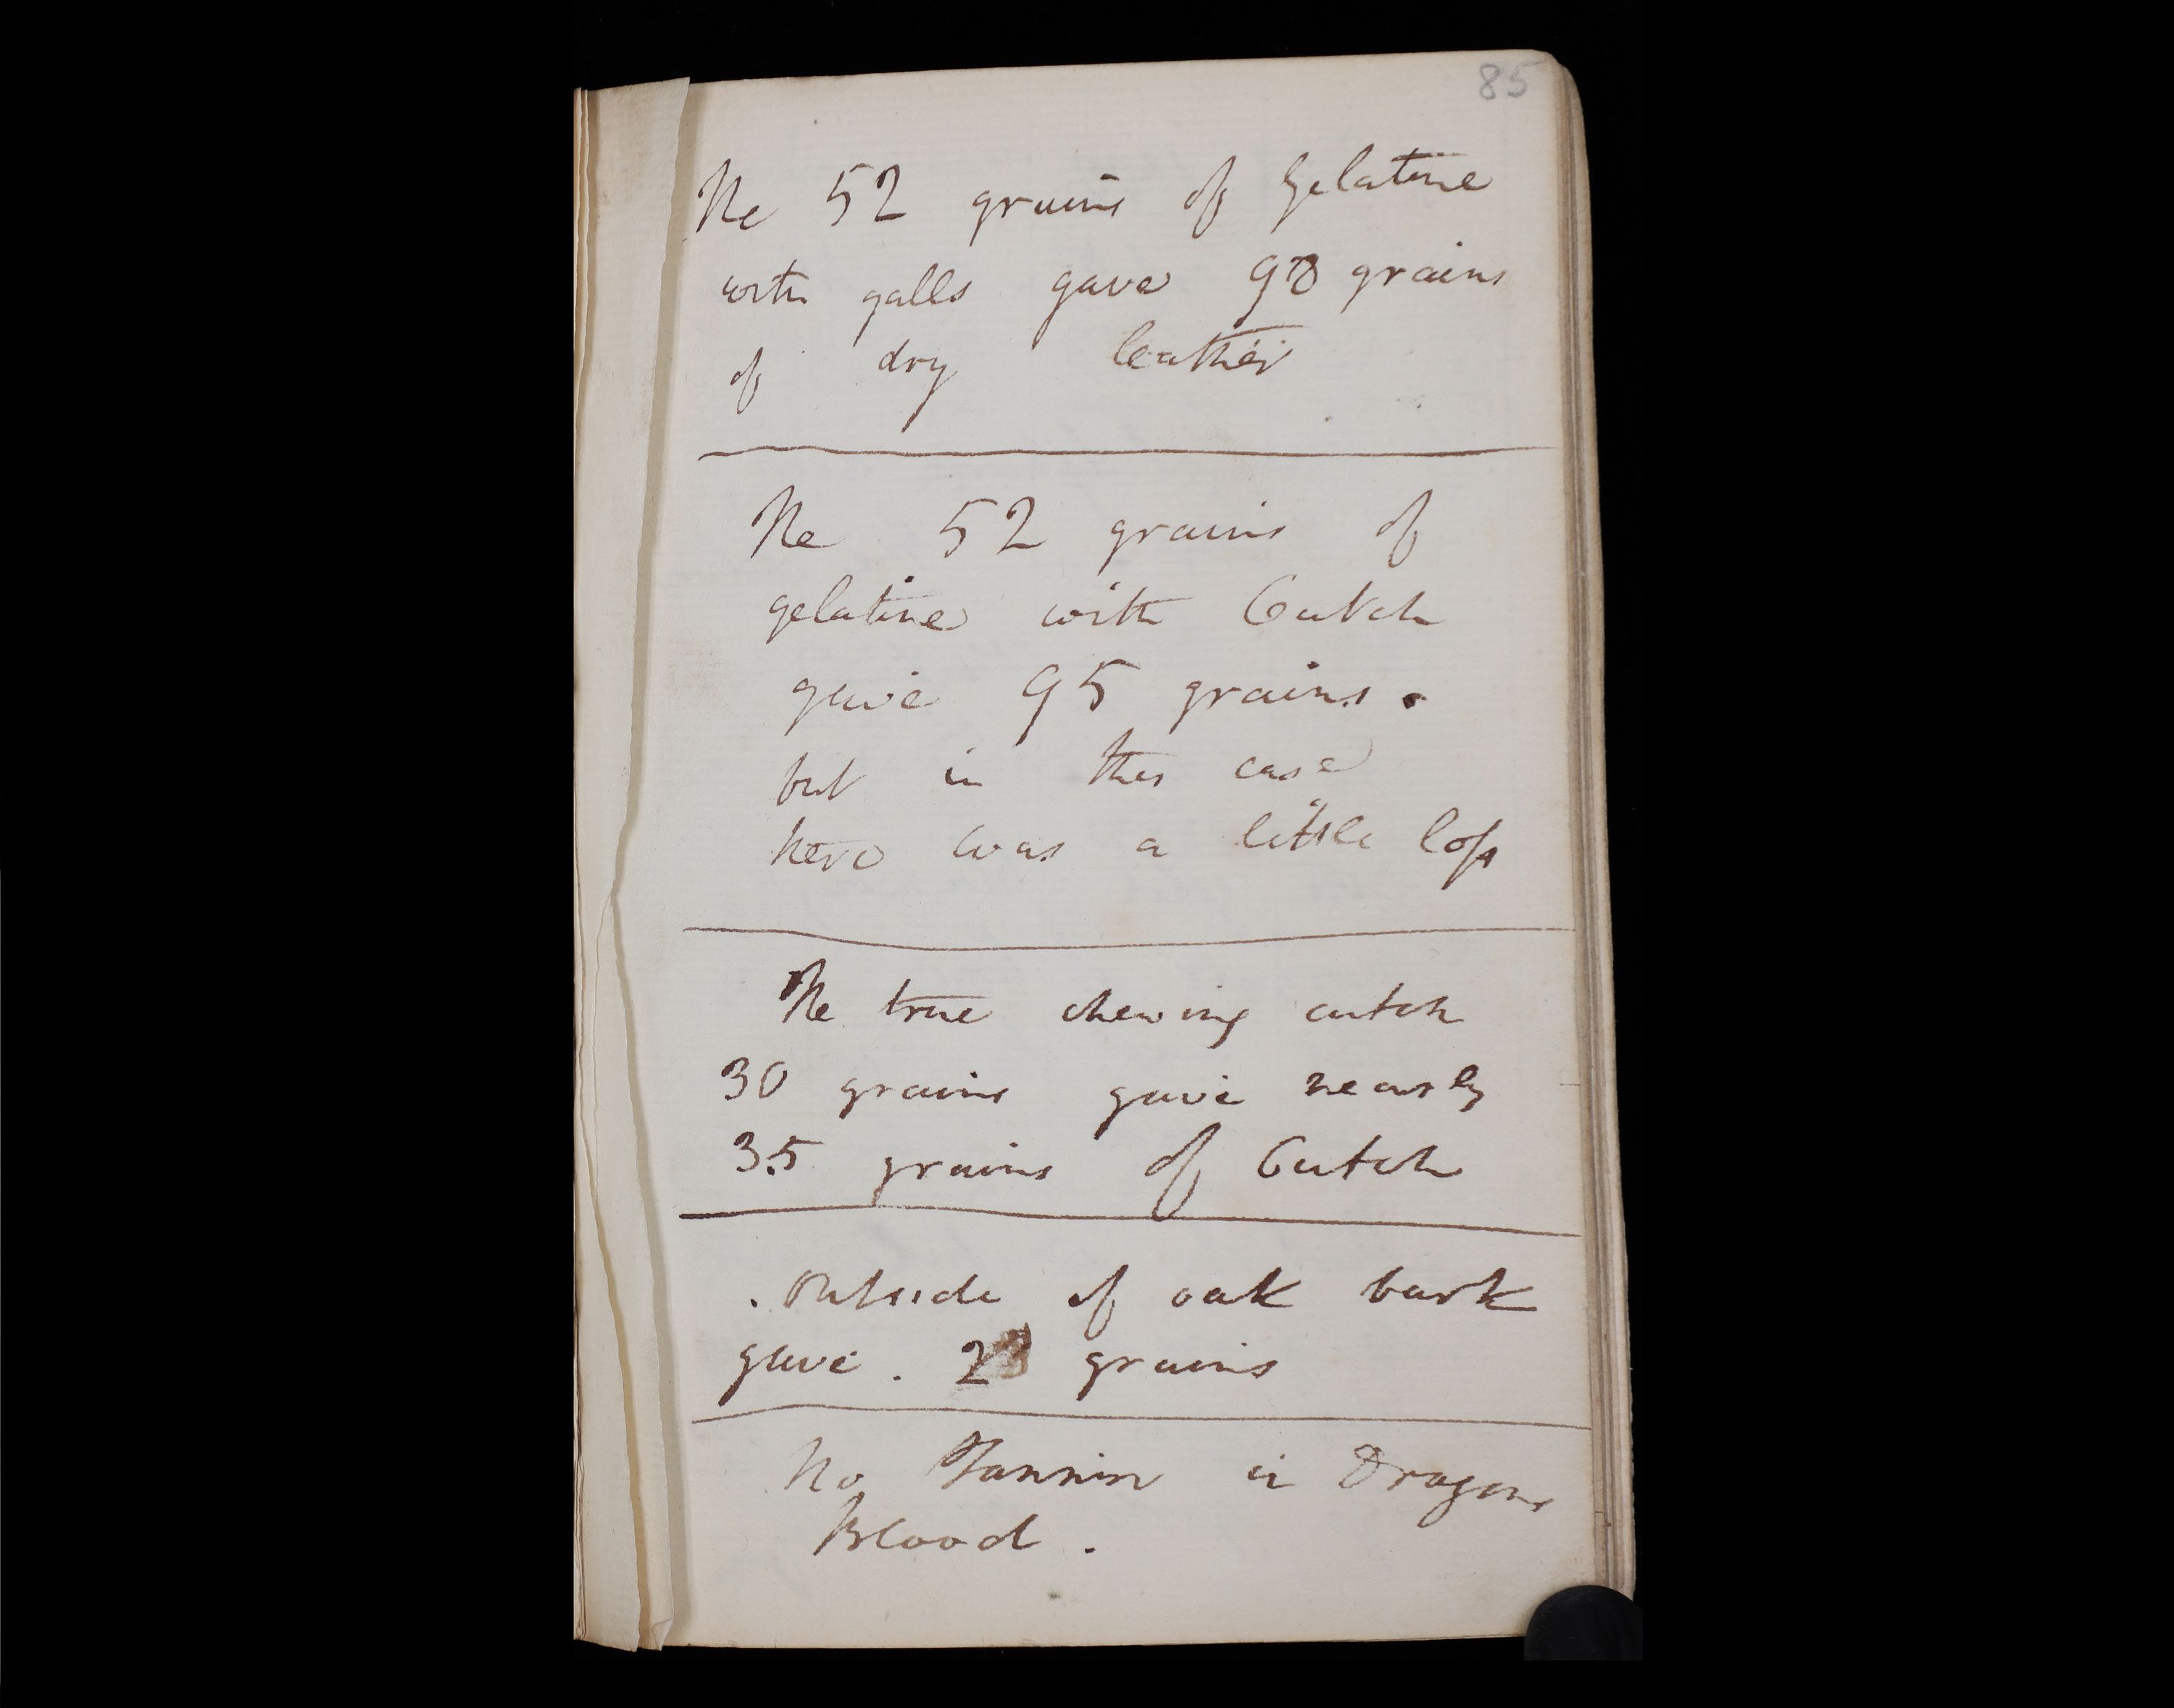 85
The 52 grains of Gelatine
with galls gave 98 grains
of dry leather
The 52 grains of
gelatine with Cutch
gave 95 grains.
but in this case
there was a little loss
The true chewing cutch
30 grains gave nearly
35 grains of Cutch
. Outside of oak bark
gave. 23 grains
No Tannin in Dragons
Blood.